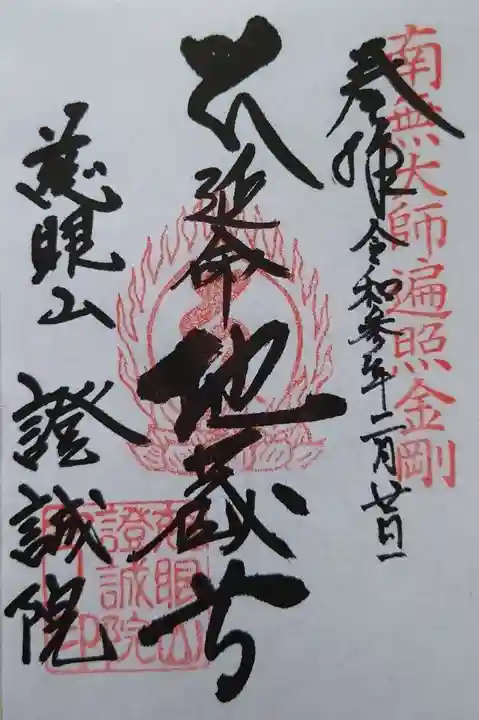 南無大師遍照金剛
奉拝 令和参年二月廿一日
延命地蔵尊
慈眼山 證誠院
慈眼山
證誠院
印